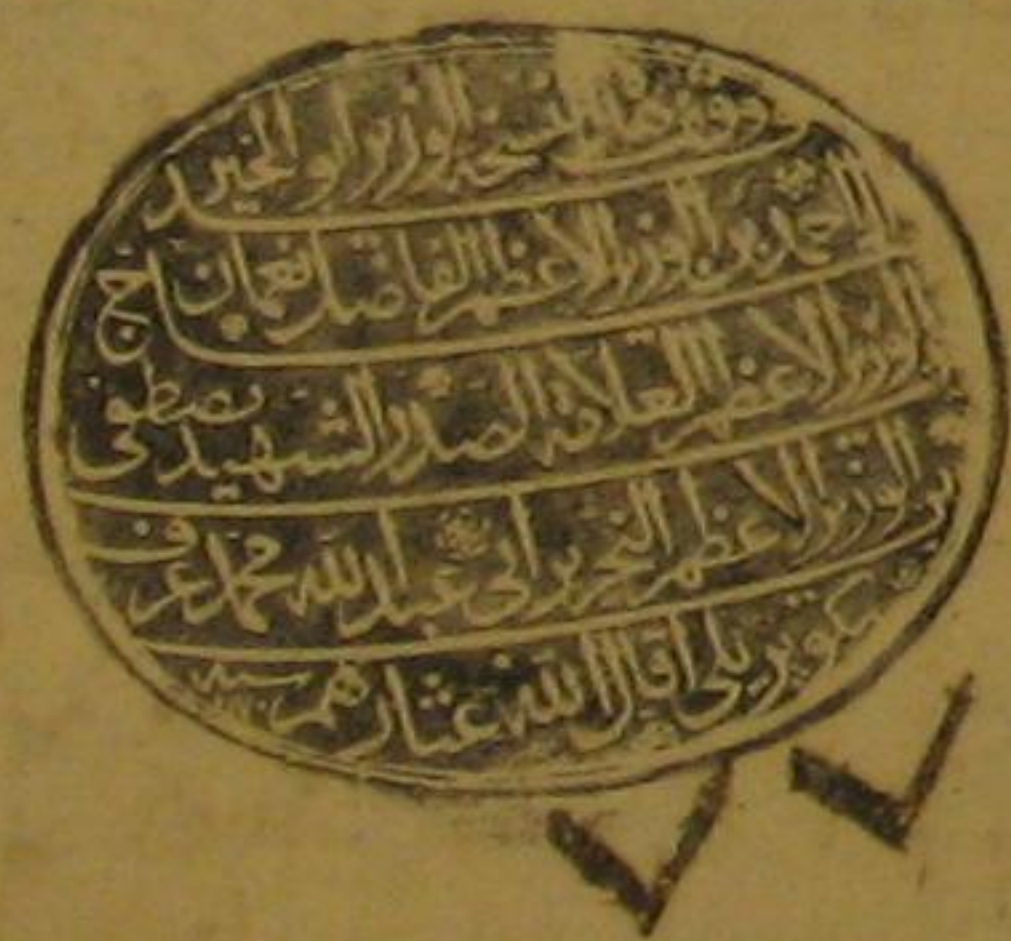 وقف هذه النسخة الوزير أبو الخير
الحاج أحمد بن الوزير الأعظم الفاضل نعمان بن
الوزير الأعظم العلامة الصدر الشهيد مصطفى
بن الوزير الأعظم النحرير أبي عبد الله محمد عرف
بكوپريلي أقال الله عثارهم
٧٧